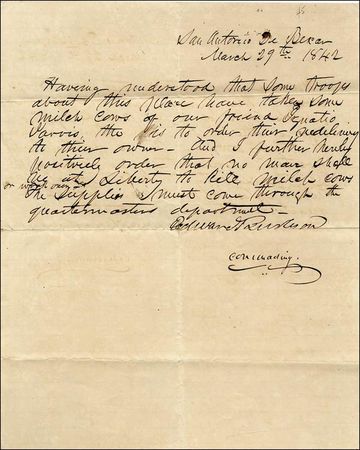 San Antonio De Bexar
March 29th 1842
Having understood that some troops
about this place have taken some
milch cows of our friend Ignatio
the is to order their
to their owner - And I further hereby
positively order that no man shall
be at Liberty to kill milch cows
or work oxen
the supplies must come through the
quartermasters department
Edward Burleson